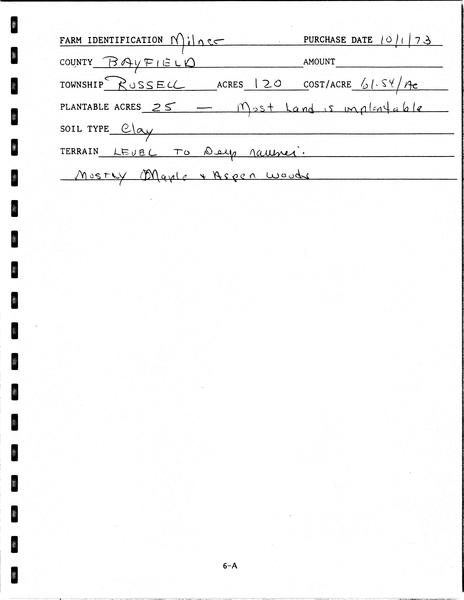 FARM IDENTIFICATION Milner PURCHASE DATE 10/1/73
COUNTY BAYFIELD AMOUNT
TOWNSHIP RUSSELL ACRES 120 COST/ACRE 61.54/Ac
PLANTABLE ACRES 25 — Most Land is implantable
SOIL TYPE Clay
TERRAIN LEVEL TO Deep ravines.
MOSTLY Maple & Aspen woods
6-A